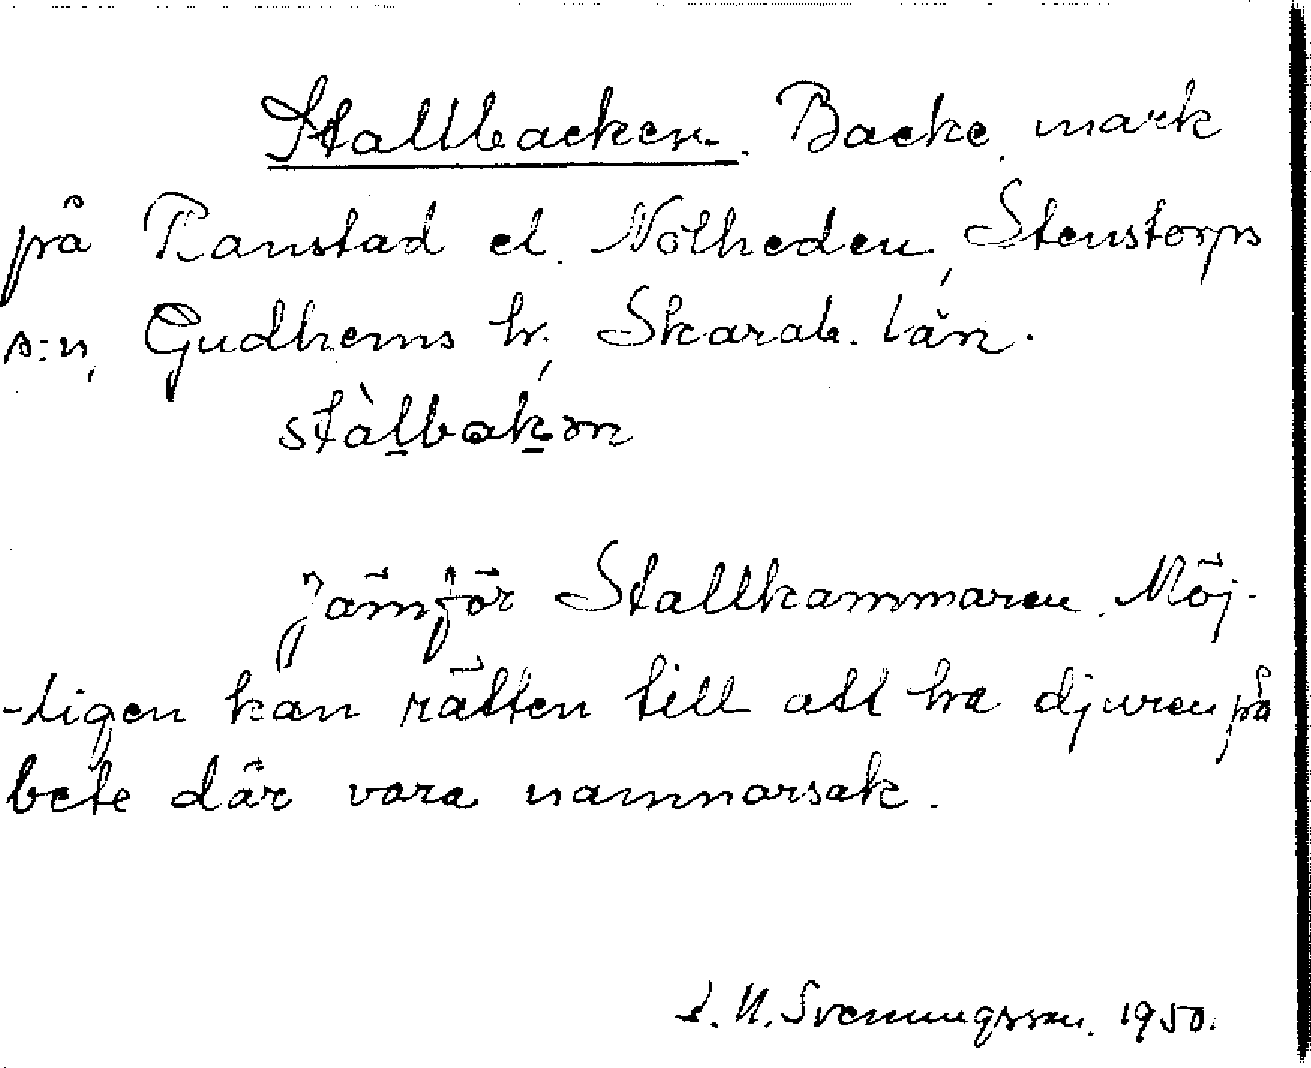 Stallbacken. Backe, mark
på Ranstad el. Nolheden, Stenstorps
s:n, Gudhems hr, Skarab. län.
stàlbakən
Jämför Stallkammaren. Möj-
-ligen kan rätten till att ha djuren på
bete där vara namnorsak.
S. N. Svenungsson. 1950.